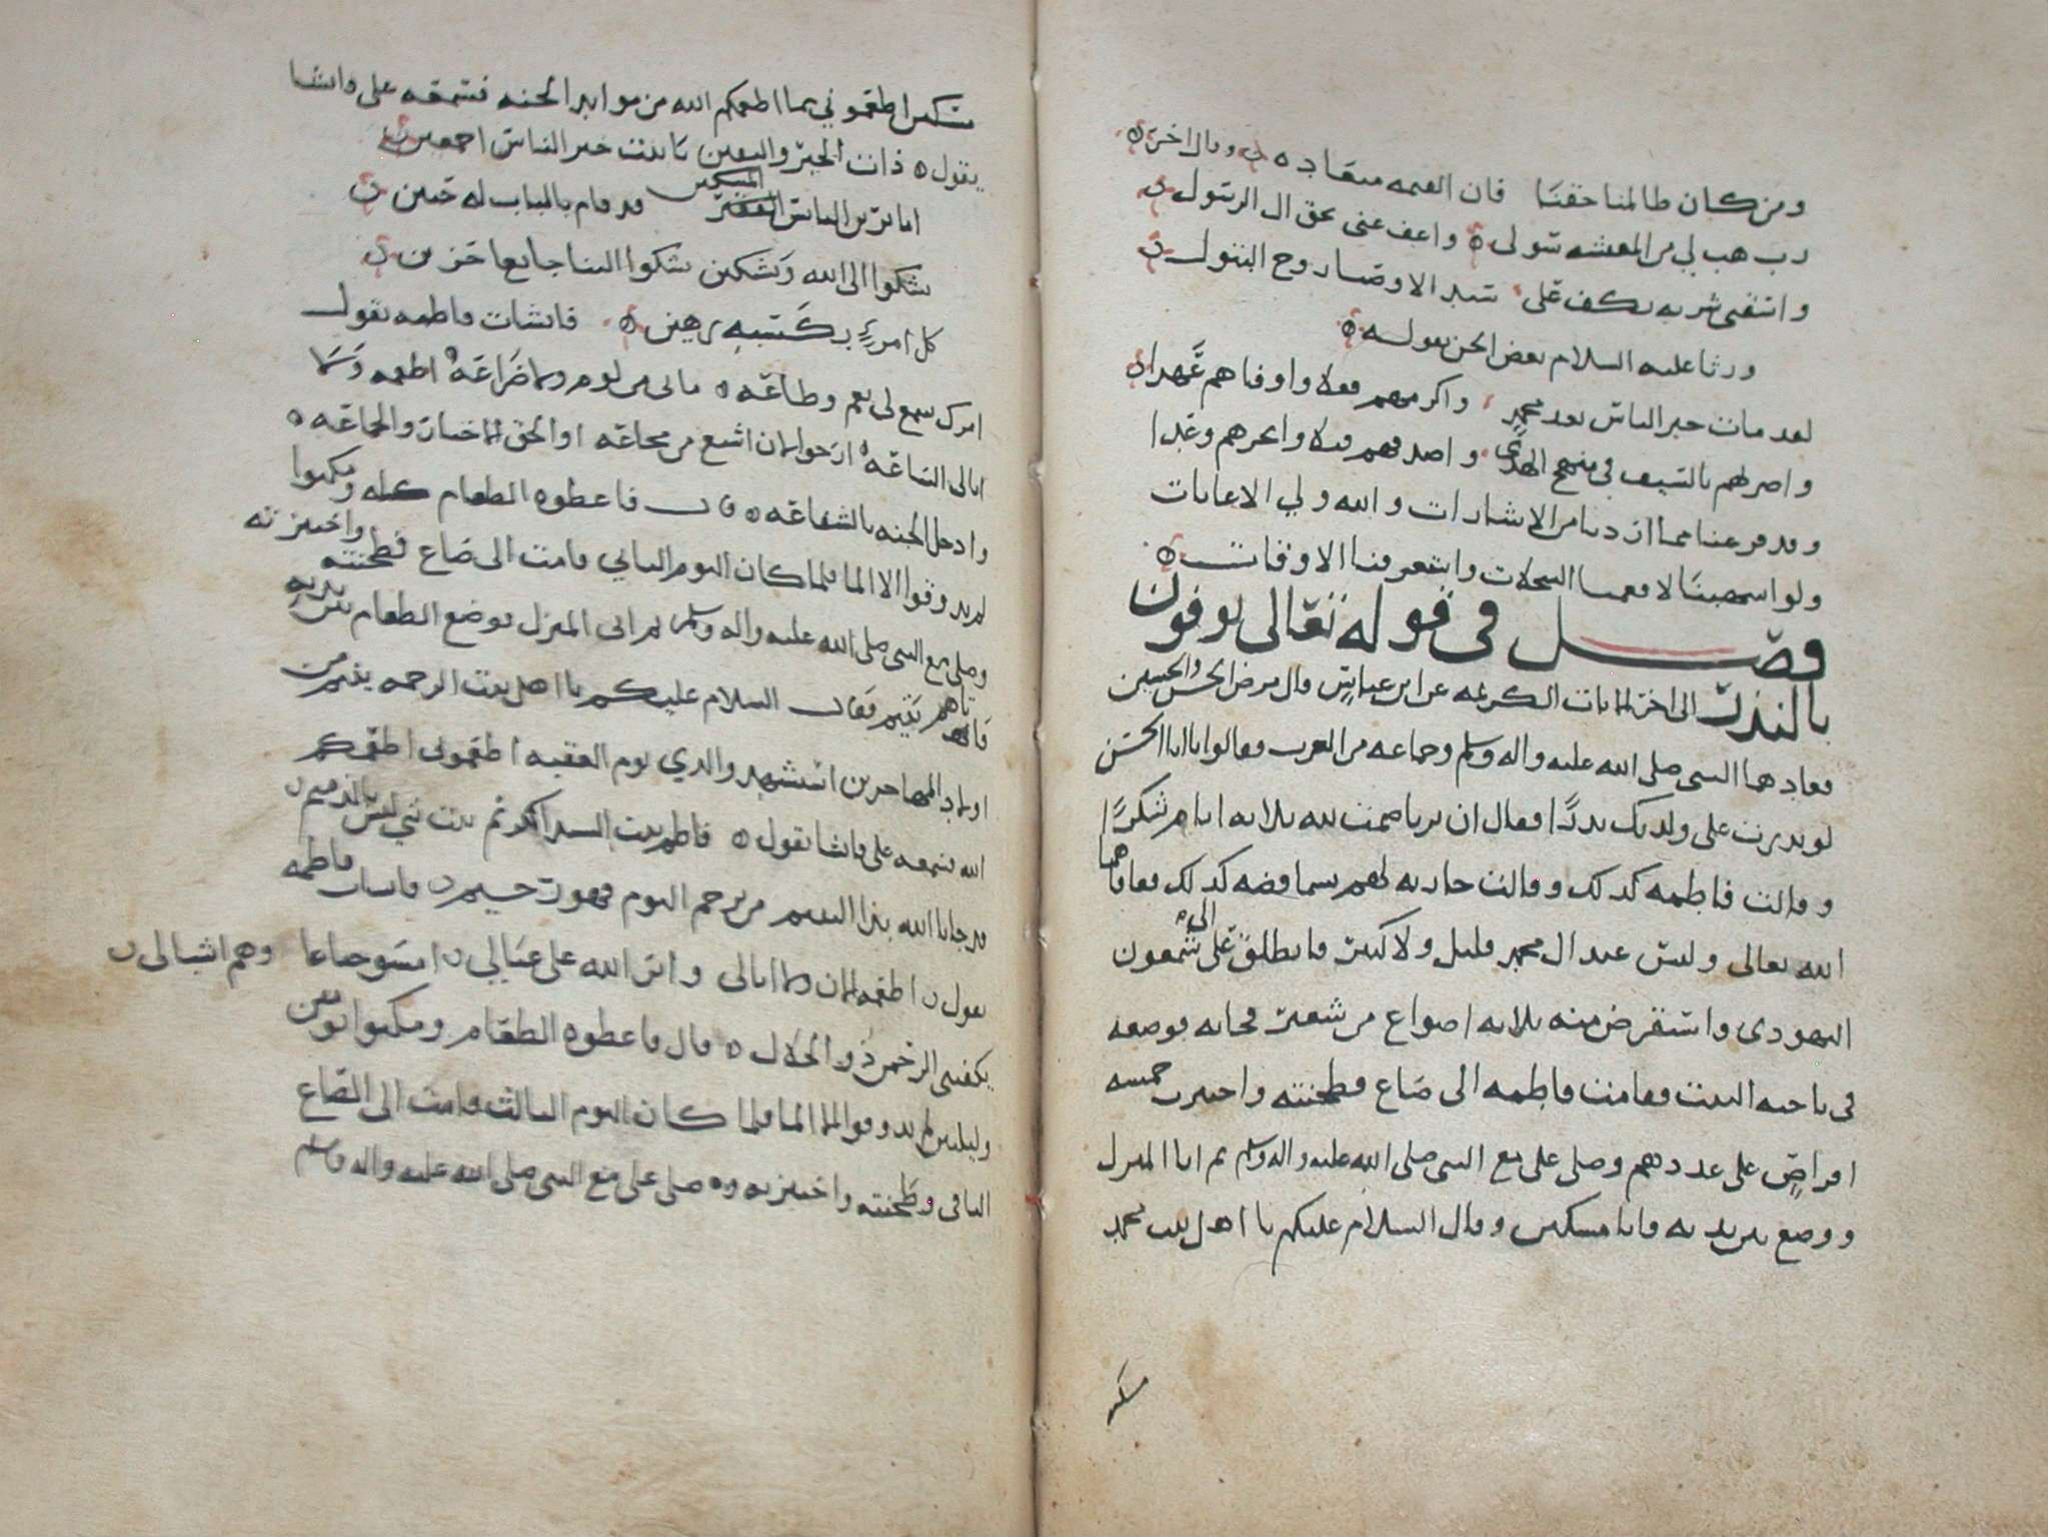 ومن كان ظالمنا حقنا فان القيمه ميعاده وقال اخر
رب هب لي من المعيشه سولى واعف عني بحق ال الرسول
واسقني شربه بكف على سيد الاوصيا زوج البتول
ورثا عليه السلام بعض الجن بقوله
لقد مات خير الناس بعد محمد واكرمهم فعلا واوفاهم عهدا
واضربهم بالسيف في منهج الهدى واصدقهم قيلا وانجزهم وعدا
وقد فرغنا مما اردنا من الاشارات والله ولي الاعانات
ولو استقصينا لافعمنا السجلات واستغرقنا الاوقات
فصل في قوله تعالى يوفون
بالنذر الى اخر الايات الكريمه عن ابن عباس قال مرض الحسن والحسين
فعادهما النبي صلى الله عليه واله وسلم وجماعه من العرب فقالوا يا ابا الحسن
لو نذرت على ولديك نذرا فقال ان بريا صمت لله ثلاثه ايام شكرا
وقالت فاطمه كذلك وقالت جاريه لهم يسما فضه كذلك فعافاهما
الله تعالى وليس عند ال محمد قليل ولا كثير فانطلق على الى شمعون
اليهودى واستقرض منه ثلاثه اصواع من شعير فجا به فوضعه
في ناحيه البيت فقامت فاطمه الى صاع فطحنته واختبزت خمسه
اقراص على عددهم وصلى على مع النبي صلى الله عليه واله وسلم ثم اتا المنزل
ووضع بين يديه فاتا مسكين وقال السلام عليكم يا اهل بيت محمد
مسكين
مسكين اطعموني مما اطعمكم الله من موايد الجنه فسمعه على وانشا
يقول ذات الخير واليقين يا بنت خير الناس اجمعين
اما ترين الباس الفقير المسكين قد قام بالباب له حنين
يشكوا الى الله ويشكين يشكوا الينا جايعا حزين
كل امرء بكسبه رهين فانشات فاطمه تقول
امرك سمع لي نعم وطاعه مالي من لوم ولا ضراعه اطعمه ولا
ابالى الساعه ارجوا لان اشبع من مجاعه او الحق الاخيار والجماعه
وادخل الجنه بالشفاعه قال فاعطوه الطعام كله ومكثوا
لم يذوقوا الا الما فلما كان اليوم الثاني قامت الى صاع فطحنته واختبزته
وصلى مع النبي صلى الله عليه واله وسلم ثم اتى المنزل فوضع الطعام بين يديه
فاتاهم يتيم فقال السلام عليكم يا اهل بيت الرحمه يتيم من
اولاد المهاجرين استشهد والدي يوم العقبه اطعموني اطعمكم
الله فسمعه على فانشا يقول فاطم بنت السيد الكريم بنت نبي ليس بالذميم
قد جانا الله بذا اليتيم من يرحم اليوم فهو رحيم فانشات فاطمه
تقول اطعمه الان ولا ابالى واثر الله على عيالي امسوا جياعا وهم اشبالى
يكفيني الرحمن ذو الجلال قال فاعطوه الطعام ومكثوا يومين
وليلتين لم يذوقوا الا الما فلما كان اليوم الثالث قامت الى الصاع
الباقى وطحنته واختبزته وصلى على مع النبي صلى الله عليه واله وسلم